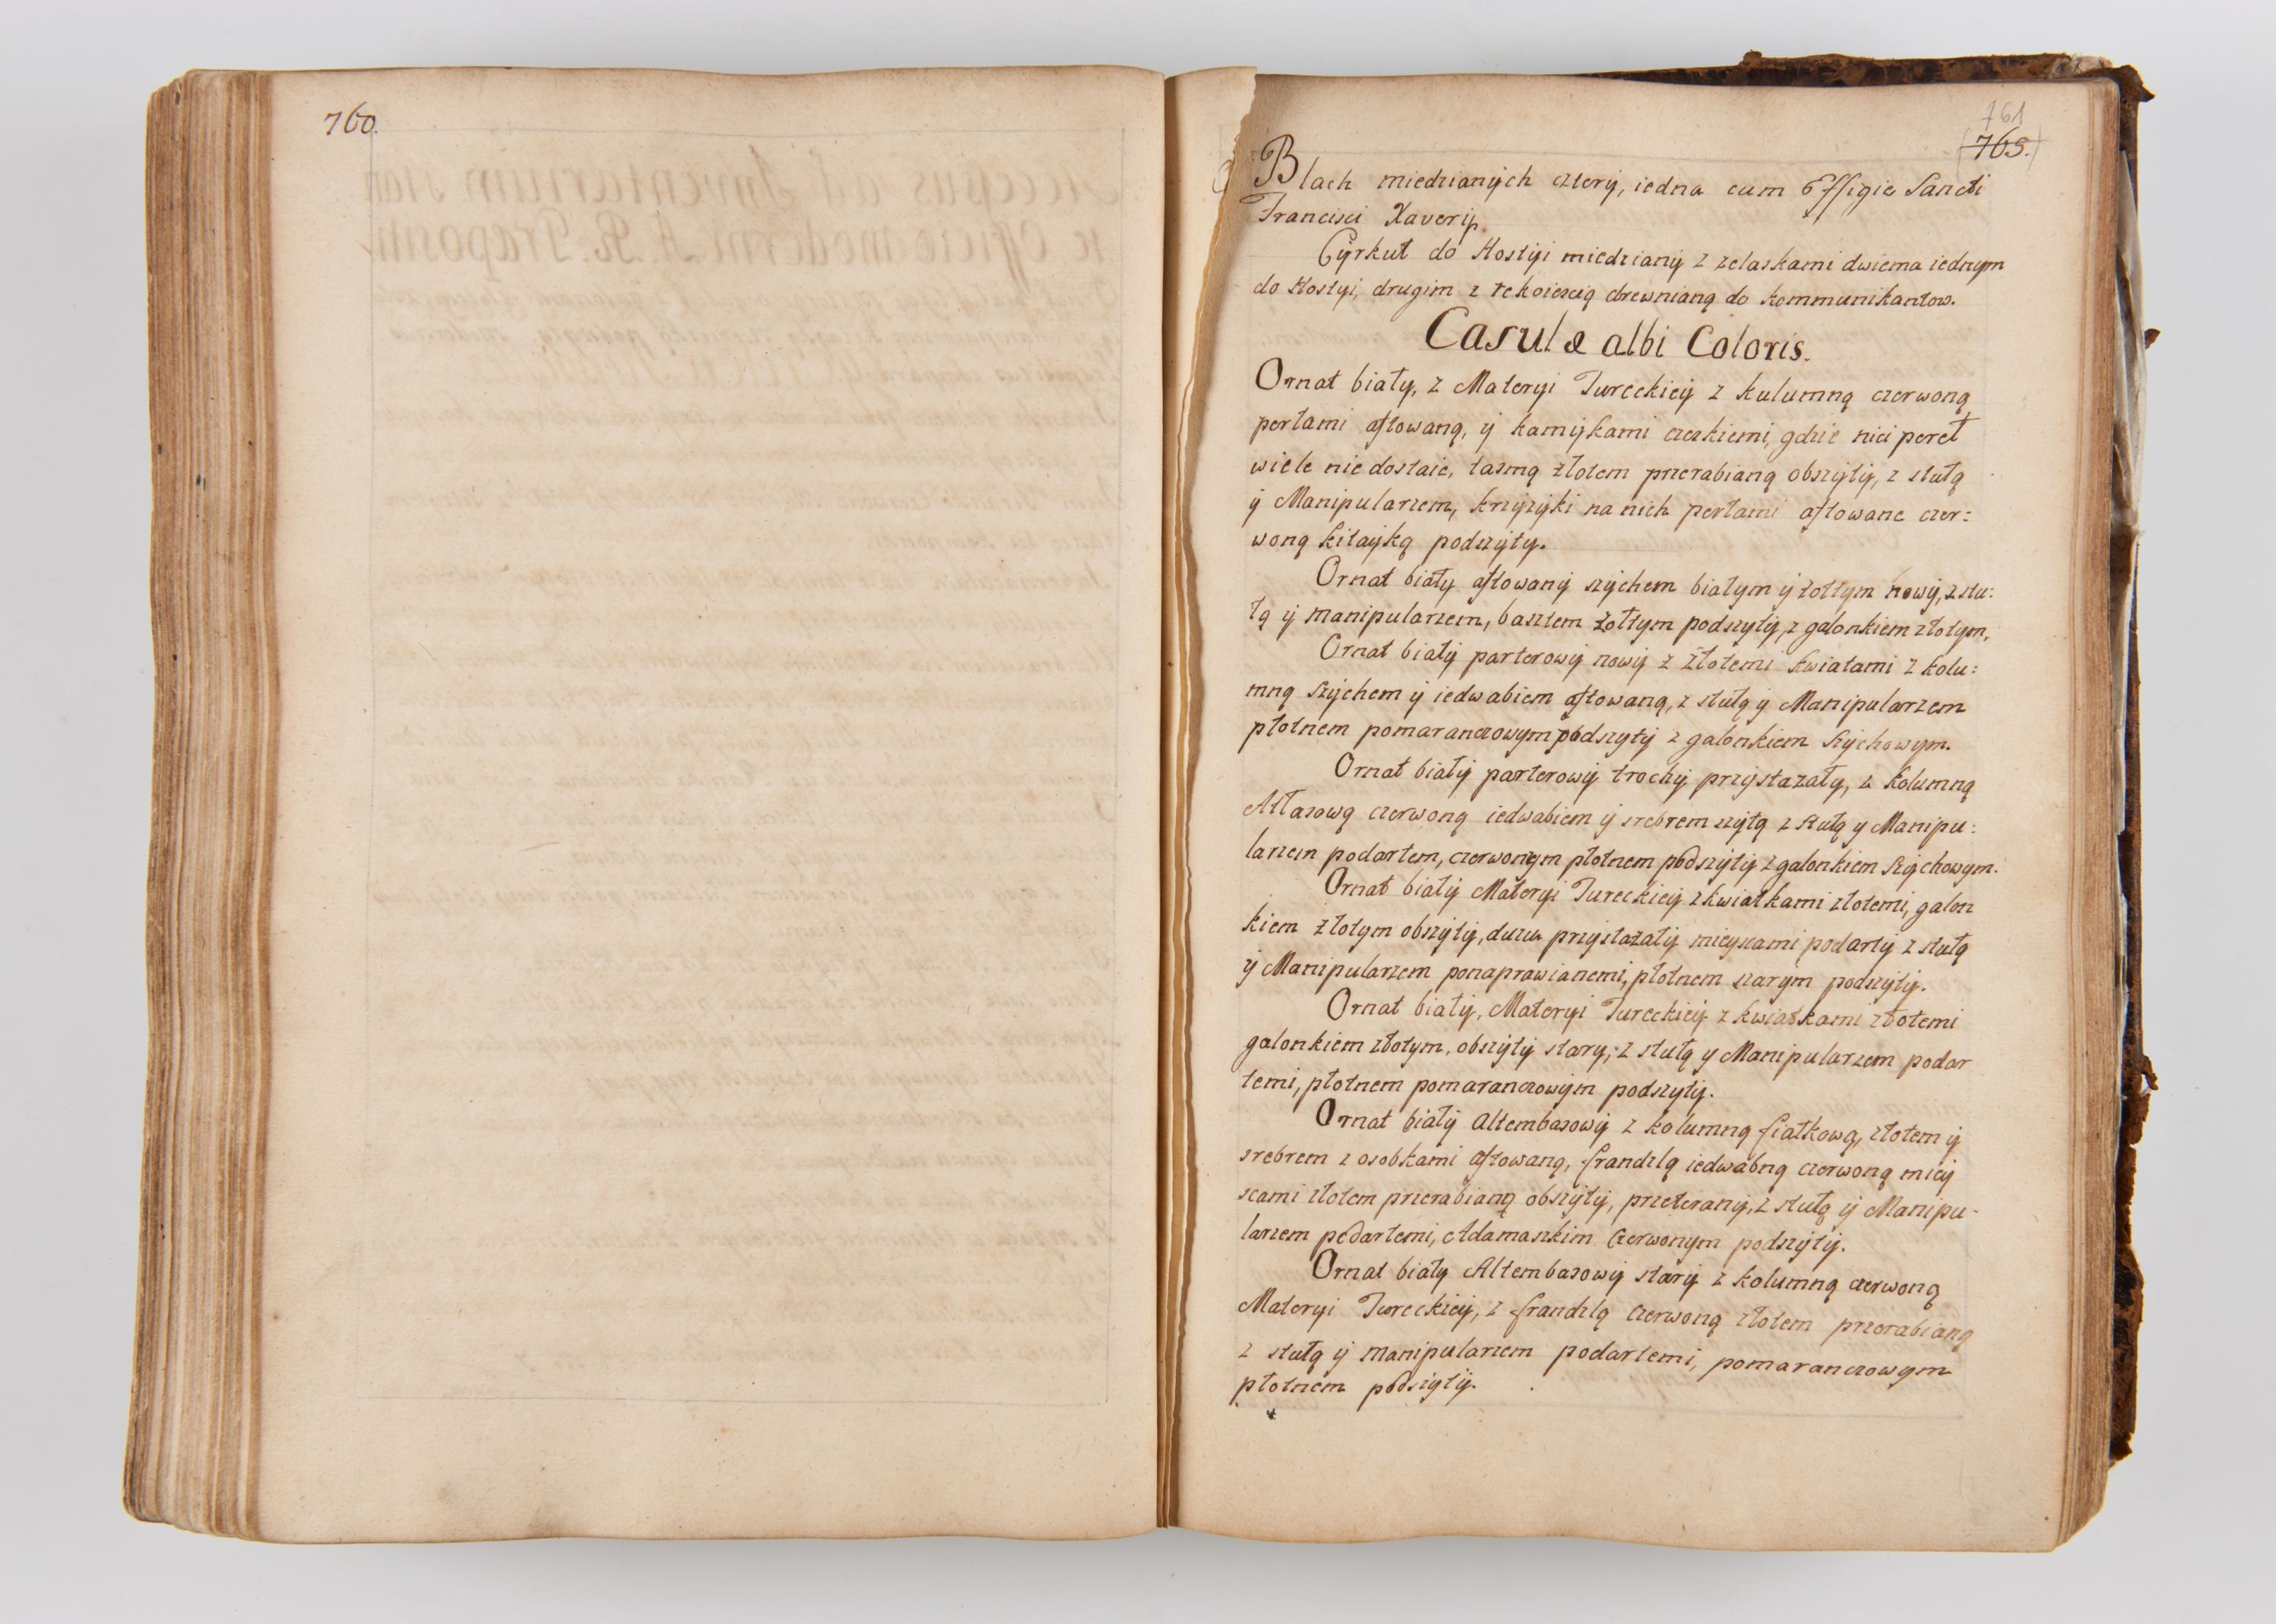 760.
761
765.
Blach miedzianÿch czterÿ, iedna cum Effigie Sancti
Francisci Xaverÿ.
Cÿrkuł do Hostÿi miedzianÿ z zelaskami dwiema iednym
do Hostyi, drugim z rekoiescią drewnianą do kommunikantow.
Casulæ albi Coloris.
Ornat biały, z Materyi Tureckieÿ z kulumną czerwoną
perłami aftowaną, ÿ kamÿkami czeskiemi, gdzie nici pereł
wiele nie dostaie, tasmą złotem przerabianą obszÿtÿ, z stułą
ÿ Manipularzem, krzÿzÿki na nich perłami aftowane czer:
woną kitaÿką podszÿty.
Ornat biały aftowanÿ szÿchem białym ÿ żołtym nowÿ, z stu:
łą ÿ manipularzem, basztem żołtym podszytÿ, z galonkiem złotym,
Ornat białÿ parterowÿ nowÿ z złotemi kwiatami z kolu:
mną szÿchem ÿ iedwabiem aftowaną, z stułą ÿ Manipularzem
płotnem pomaranczowym podszytÿ z galonkiem szÿchowym.
Ornat białÿ parterowÿ trochÿ przÿstazały, z kolumną
Atłasową czerwoną iedwabiem ÿ srebrem szÿtą z stułą y Manipu:
larzem podartem, czerwonym płotnem podszÿtÿ z galonkiem szÿchowym.
Ornat białÿ Materÿi Tureckieÿ z kwiatkami złotemi, galon
kiem złotym obszÿtÿ, duzo przÿstazałÿ mieyscami podartÿ z stułą
ÿ Manipularzem ponaprawianemi, płotnem szarÿm podszÿtÿ.
Ornat białÿ, Materÿi Tureckieÿ z kwiatkami złotemi
galonkiem złotym, obszÿtÿ stary, z stułą y Manipularzem podar
temi, płotnem pomaranczowÿm podszytÿ.
Ornat białÿ Altembasowÿ z kolumną fiałkową, złotem ÿ
srebrem z osobkami aftowaną, frandzlą iedwabną czerwoną mieÿ
scami złotem przerabianą obszÿtÿ, przeteranÿ, z stułą ÿ Manipu-
larzem podartemi, Adamaszkim czerwonym podszÿtÿ.
Ornat biały Altembasowÿ starÿ z kolumną czerwoną
Materyi Tureckieÿ, z frandzlą czerwoną złotem przerabianą
z stułą ÿ manipularzem podartemi, pomaranczowym
płotnem podszÿtÿ.